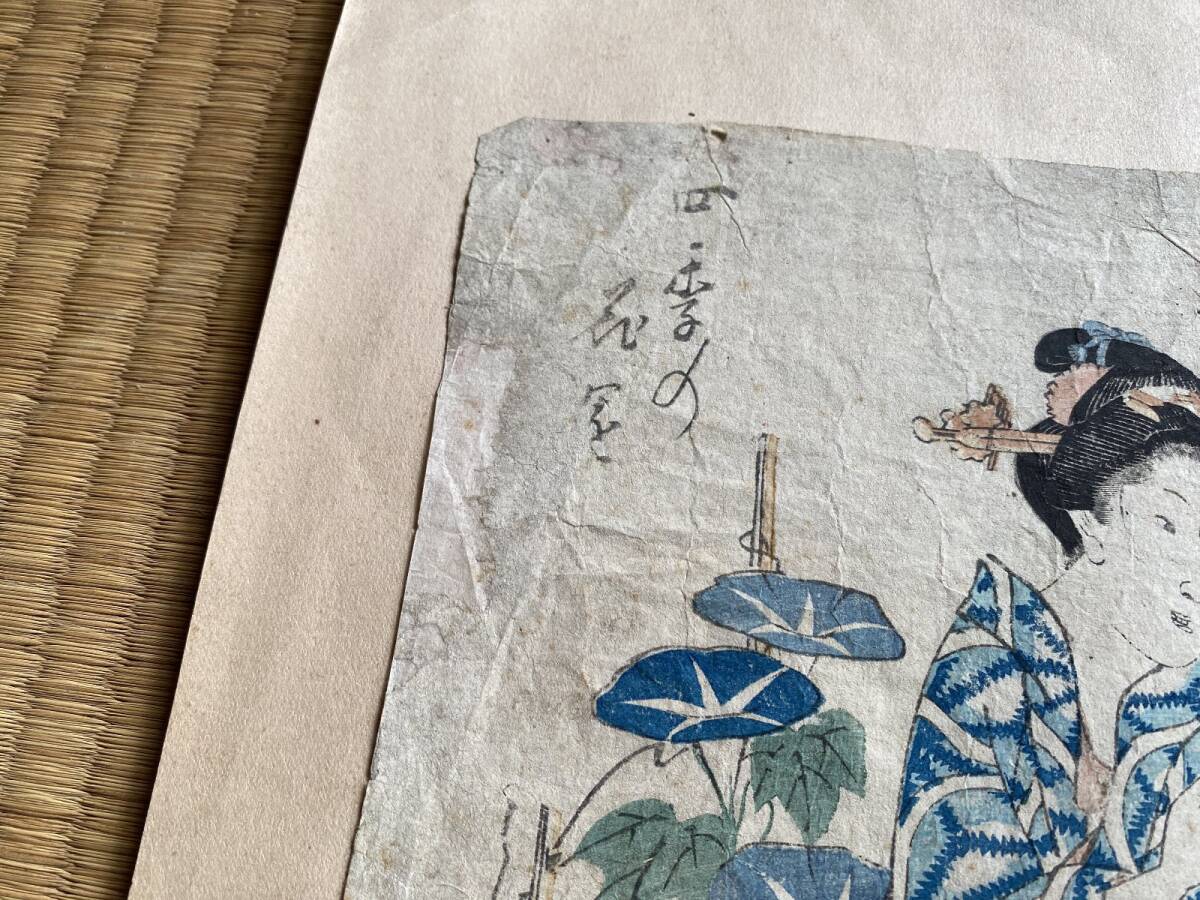 四季の
花園